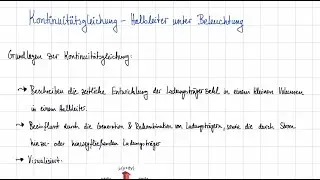 Kontinuitätsgleichung – Halbleiter unter Beleuchtung
Grundlagen der Kontinuitätsgleichung:
→ Beschreiben die zeitliche Entwicklung der Ladungsträgerzahl in einem kleinen Volumen
in einem Halbleiter.
→ Beeinflusst durch die Generation & Rekombination von Ladungsträgern, sowie die durch Strom
hinein- oder hinausfließenden Ladungsträger
→ Visualisiert: